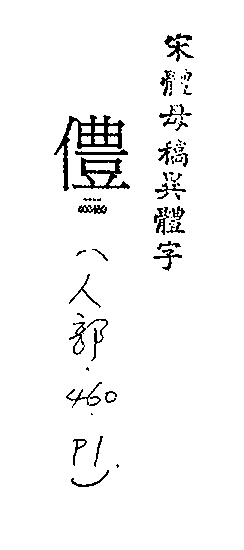 宋體母稿異體字
僼
(人部.460.P1.)